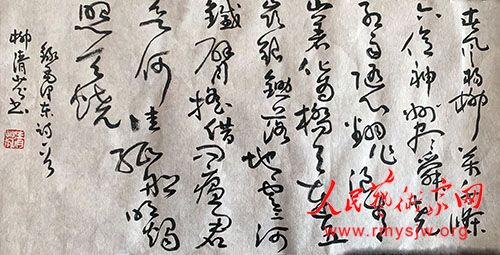 春风杨柳万千條
六亿神州尽舜尧
红雨随心翻作浪青
山著意化为桥天连五
岭银锄落地动三河
鐵臂摇借问瘟君
欲何往纸船明烛
照天烧
录毛泽东诗一首
柳清书
人民艺术家网
www.rmysjw.org